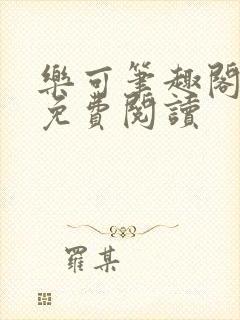 樂可筆趣閣
免費閱讀
羅某